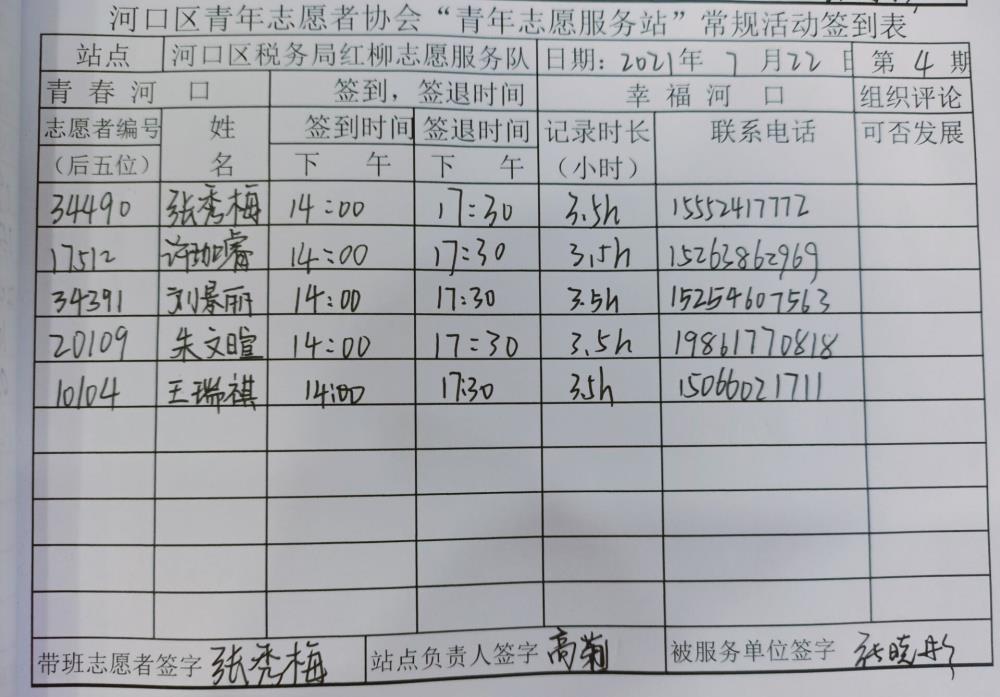 河口区青年志愿者协会“青年志愿服务站”常规活动签到表
站点 河口区税务局红柳志愿服务队 日期：2021年 7 月22 日 第 4 期
青春河 口 签到，签退时间 幸福河 口 组织评论
志愿者编号 姓 签到时间 签退时间 记录时长 联系电话 可否发展
（后五位） 名 下 午 下 午 （小时）
34490 张秀梅 14:00 17:30 3.5h 15552417772
17512 许珈睿 14:00 17:30 3.5h 15263862969
34391 刘景丽 14:00 17:30 3.5h 15254607563
20109 朱文暄 14:00 17:30 3.5h 19861770818
10104 王瑞祺 14:00 17:30 3.5h 15066021711
带班志愿者签字 张秀梅 站点负责人签字 高菊 被服务单位签字 张晓彤